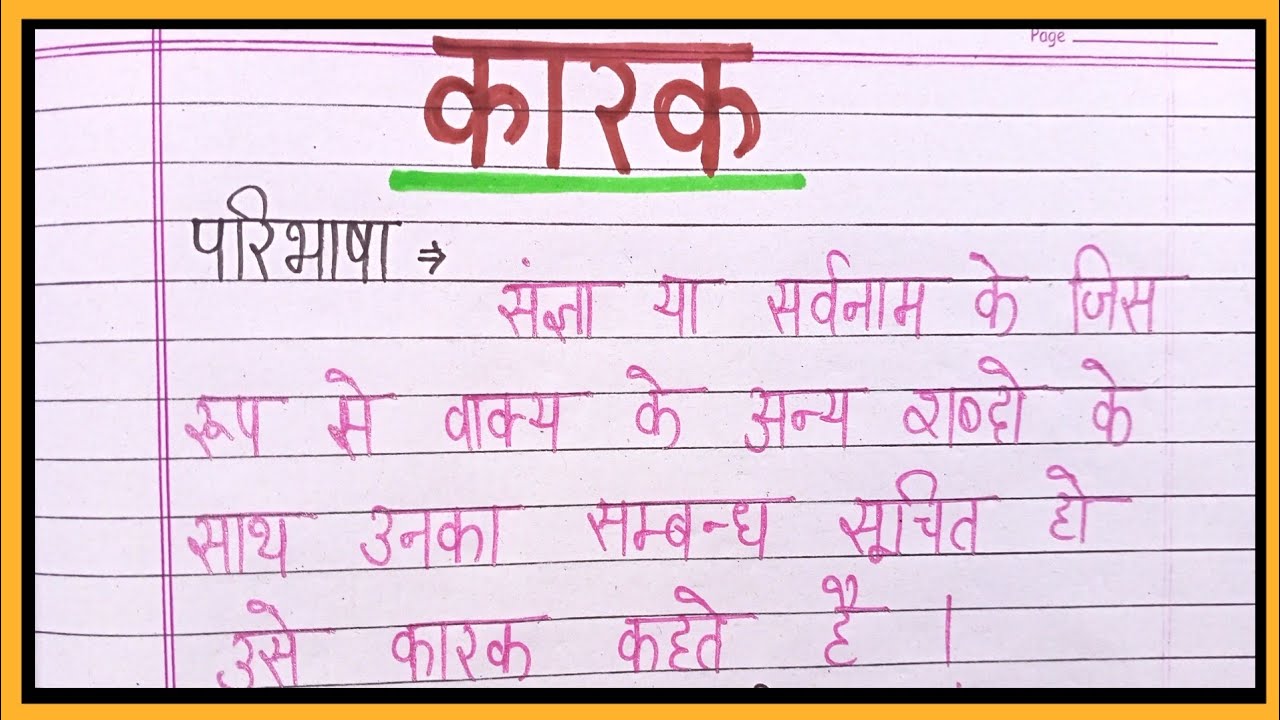 Page
कारक
परिभाषा ⇒
संज्ञा या सर्वनाम के जिस
रूप से वाक्य के अन्य शब्दो के
साथ उनका सम्बन्ध सूचित हो
उसे कारक कहते है ।